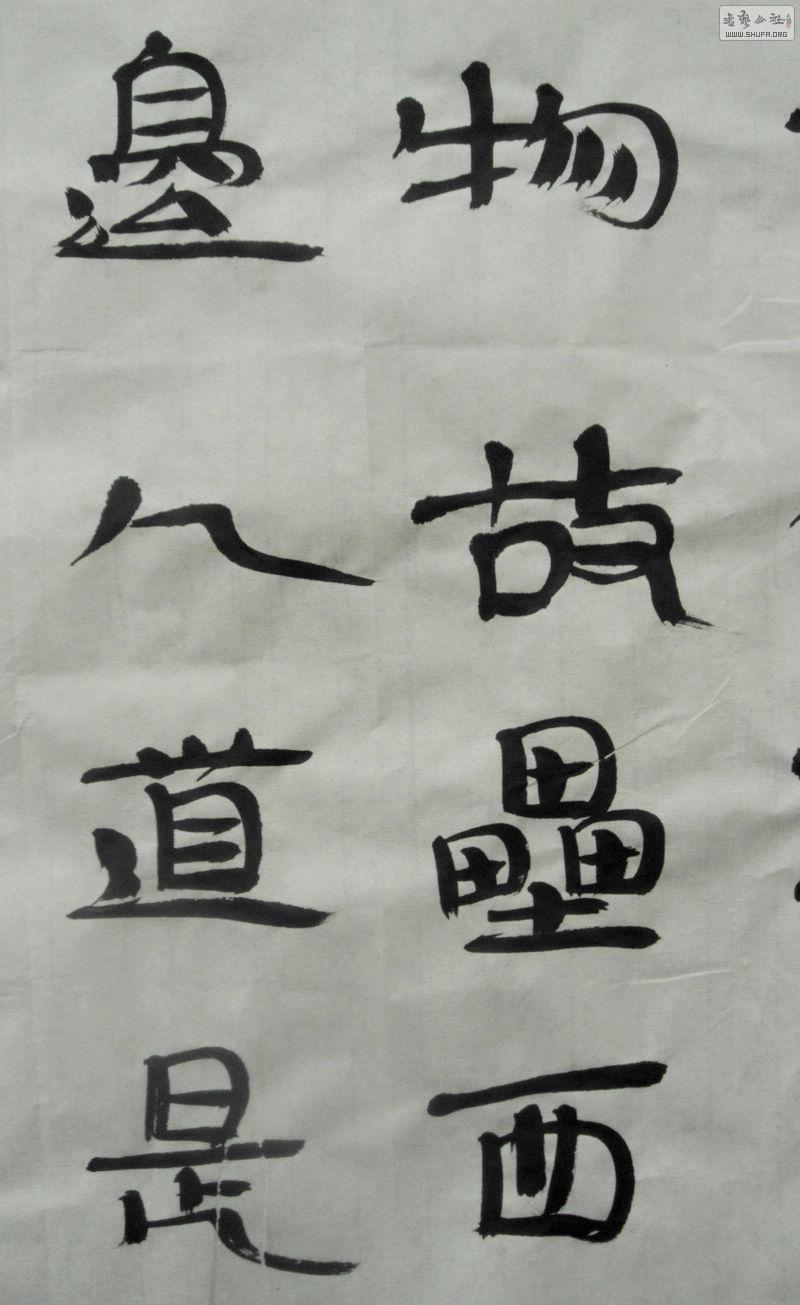 物故壘西
邊人道是
WWW.SHUFA.ORG